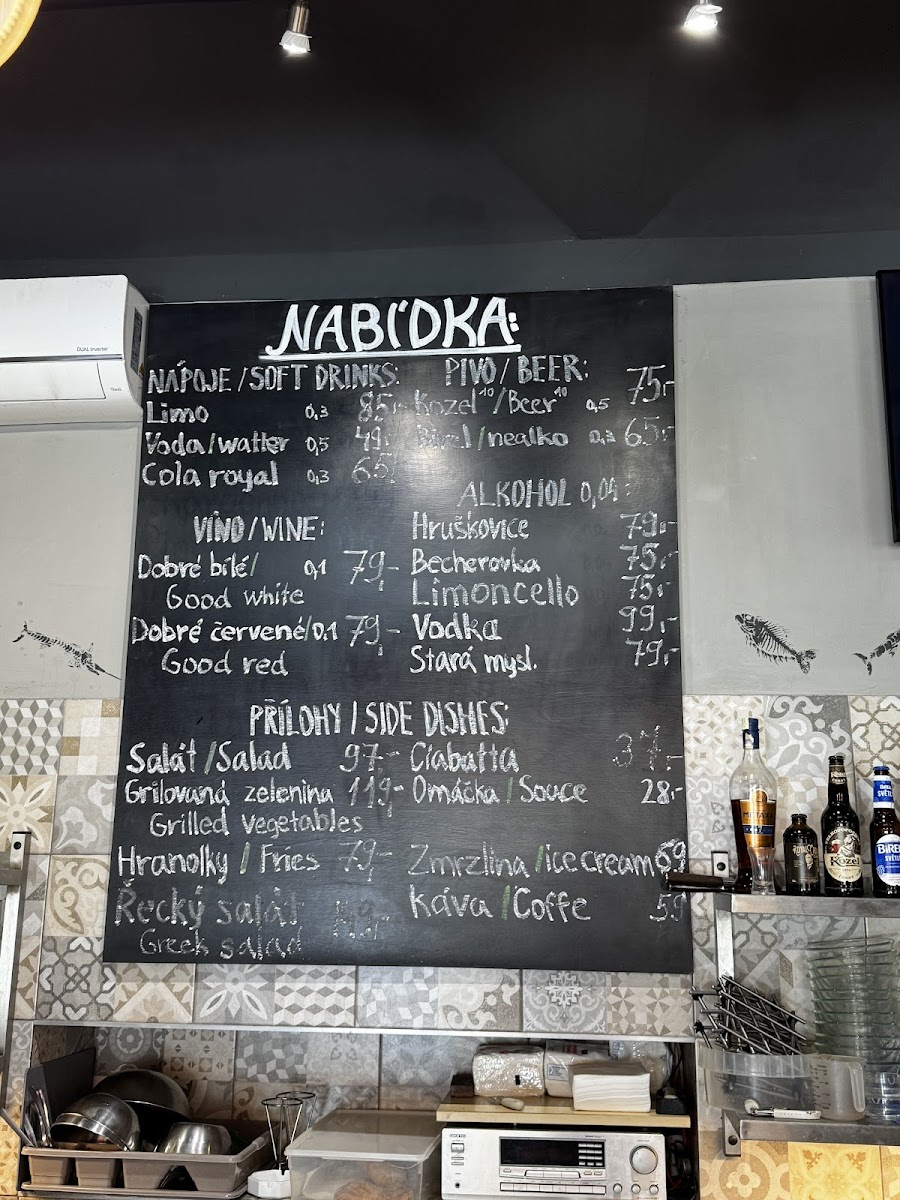 NABÍDKA:
NÁPOJE / SOFT DRINKS:
Limo 0,3 85,-
Voda / watter 0,5 49,-
Cola royal 0,3 65,-
VÍNO / WINE:
Dobré bílé / 0,1 79,-
Good white
Dobré červené / 0,1 79,-
Good red
PIVO / BEER:
Kozel 10 / Beer 10 0,5 75,-
/ nealko 65,-
ALKOHOL 0,04:
Hruškovice 79,-
Becherovka 75,-
Limoncello 75,-
Vodka 99,-
Stará mysl. 79,-
PŘÍLOHY / SIDE DISHES:
Salát / Salad 97,-
Grilovaná zelenina 119,-
Grilled vegetables
Hranolky / Fries 79,-
Řecký salát
Greek salad
Ciabatta 37,-
Omáčka / Souce 28,-
Zmrzlina / ice cream 69
káva / Coffe 59
DUAL Inverter
METAXA
Kozel
BIRELL
SVĚTLÝ
ONKYO